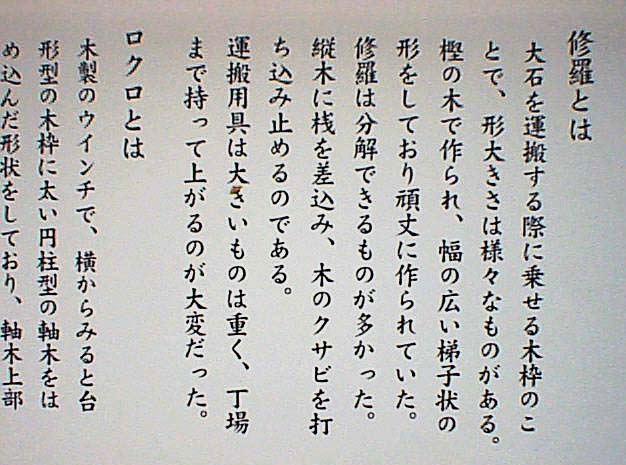 修羅とは
大石を運搬する際に乗せる木枠のこ
とで、形大きさは様々なものがある。
樫の木で作られ、幅の広い梯子状の
形をしており頑丈に作られていた。
修羅は分解できるものが多かった。
縦木に桟を差込み、木のクサビを打
ち込み止めるのである。
運搬用具は大きいものは重く、丁場
まで持って上がるのが大変だった。
ロクロとは
木製のウインチで、横からみると台
形型の木枠に太い円柱型の軸木をは
め込んだ形状をしており、軸木上部